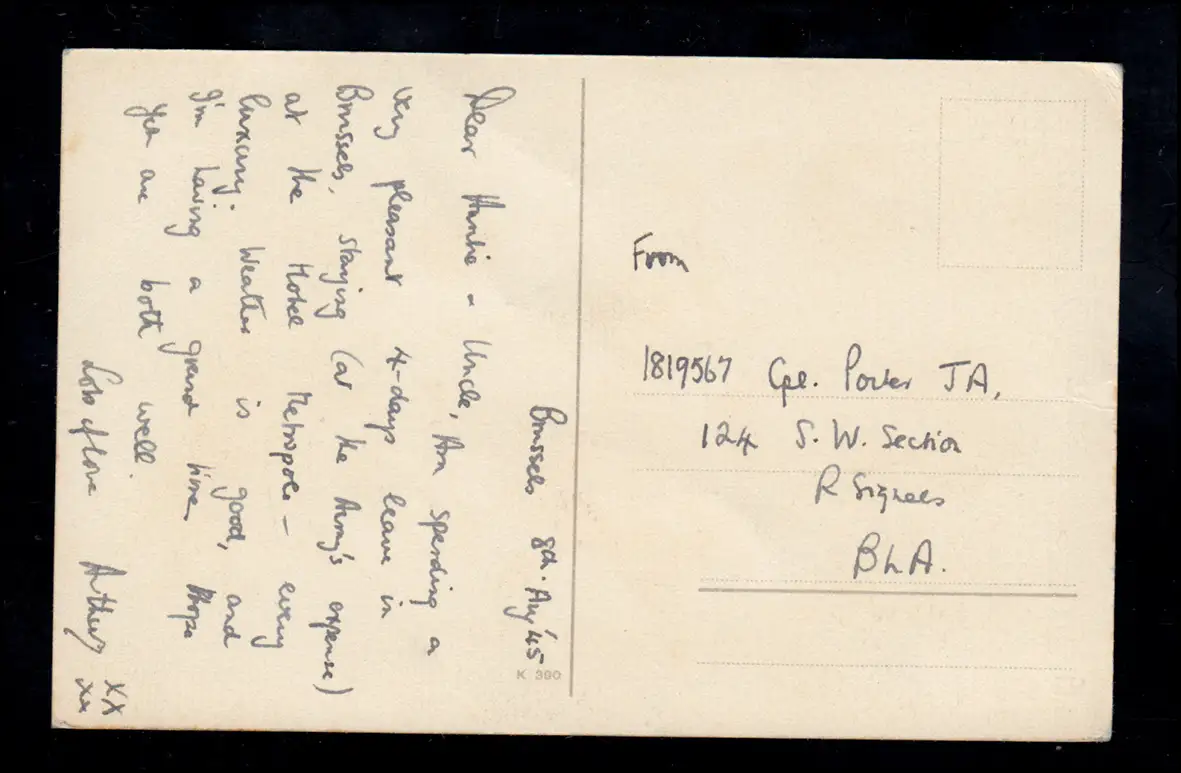 Brussels 8th. Aug '45
Dear Auntie & Uncle, Am spending a
very pleasant 4-days leave in
Brussels, staying (at the Army's expense)
at the Hotel Metropole – every
luxury. Weather is good, and
I'm having a grand time. Hope
you are both well.
Lots of love Arthur XX
xx
From
1819567 Cpl. Porter JA,
124 S. W. Section
R Signals
BLA.
K 390